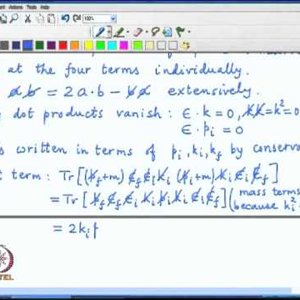 at the four terms individually.
a̸b̸ = 2a·b - b̸a̸ extensively.
dot products vanish: ϵ·k = 0, k̸k̸ = k² = 0
ϵ·pᵢ = 0
written in terms of pᵢ, kᵢ, k_f by conserva
t term: Tr[(p̸_f+m) ϵ̸_f ϵ̸ᵢ k̸ᵢ (p̸ᵢ+m) k̸ᵢ ϵ̸ᵢ ϵ̸_f]
= Tr[p̸_f ϵ̸_f ϵ̸ᵢ k̸ᵢ p̸ᵢ k̸ᵢ ϵ̸ᵢ ϵ̸_f] (mass terms
because kᵢ²
= 2kᵢ·p
NPTEL